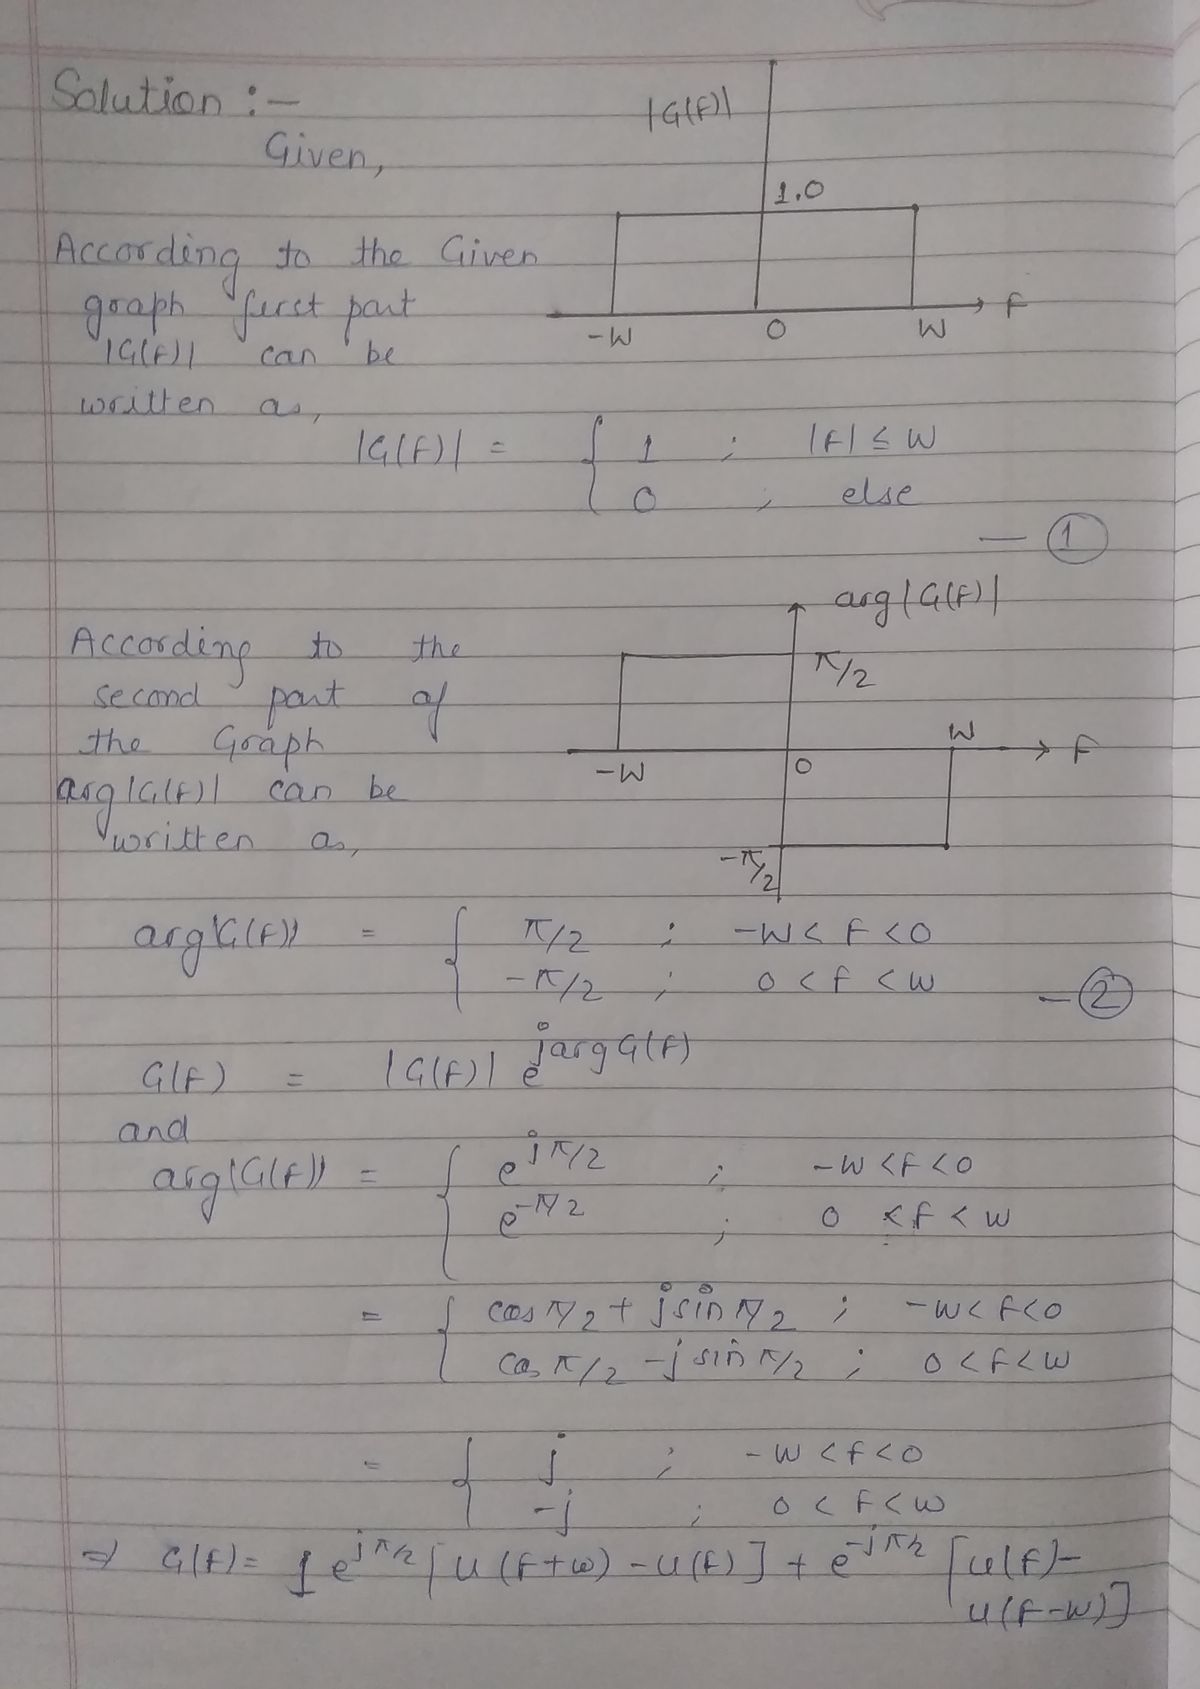 Solution :-
|G(f)|
Given,
1.0
According to the Given
graph first part
|G(f)| can be
written as,
-W 0 W f
|G(f)| = { 1 ; |f| ≤ W
0 ; else
— ①
arg|G(f)|
According to the
second part of
the Graph
arg|G(f)| can be
written as,
π/2
-W 0 W f
-π/2
arg|G(f)| = { π/2 ; -W < f < 0
-π/2 ; 0 < f < W
— ②
G(f) = |G(f)| e^{jarg G(f)}
and
arg|G(f)| = { e^{jπ/2} ; -W < f < 0
e^{-π/2} ; 0 < f < W
= { cos π/2 + j sin π/2 ; -W < f < 0
cos π/2 - j sin π/2 ; 0 < f < W
= { j ; -W < f < 0
-j ; 0 < f < W
⇒ G(f) = 1 e^{jπ/2} [u(f+w) - u(f)] + e^{-jπ/2} [u(f) -
u(f-w)]